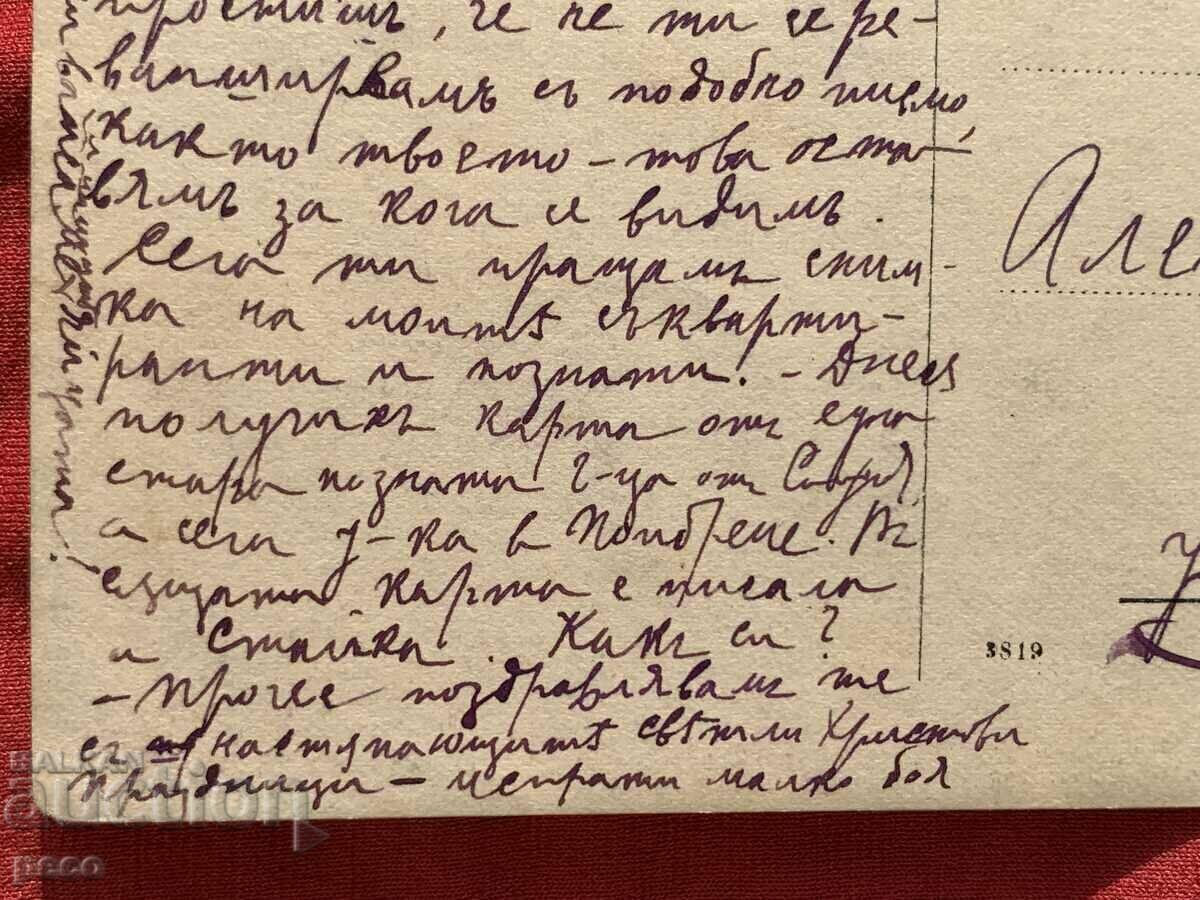 простишъ, че не ти се ре-
ванширвамъ съ подобно писмо,
както твоето – това оста-
вямъ за кога се видимъ.
Сега ти пращамъ сним-
ка на моитѣ съкварти-
ранти и познати. – Днесъ
получихъ карта отъ една
стара позната г-ца отъ
а сега у-ка в Въ
същата карта е писала
и Стайка. Какъ си?
– Прочее поздравлявамъ те
съ настѫпающитѣ свѣтли Христови
празници – испрати малко боя
Але
3819
BALKAN
auction
peco